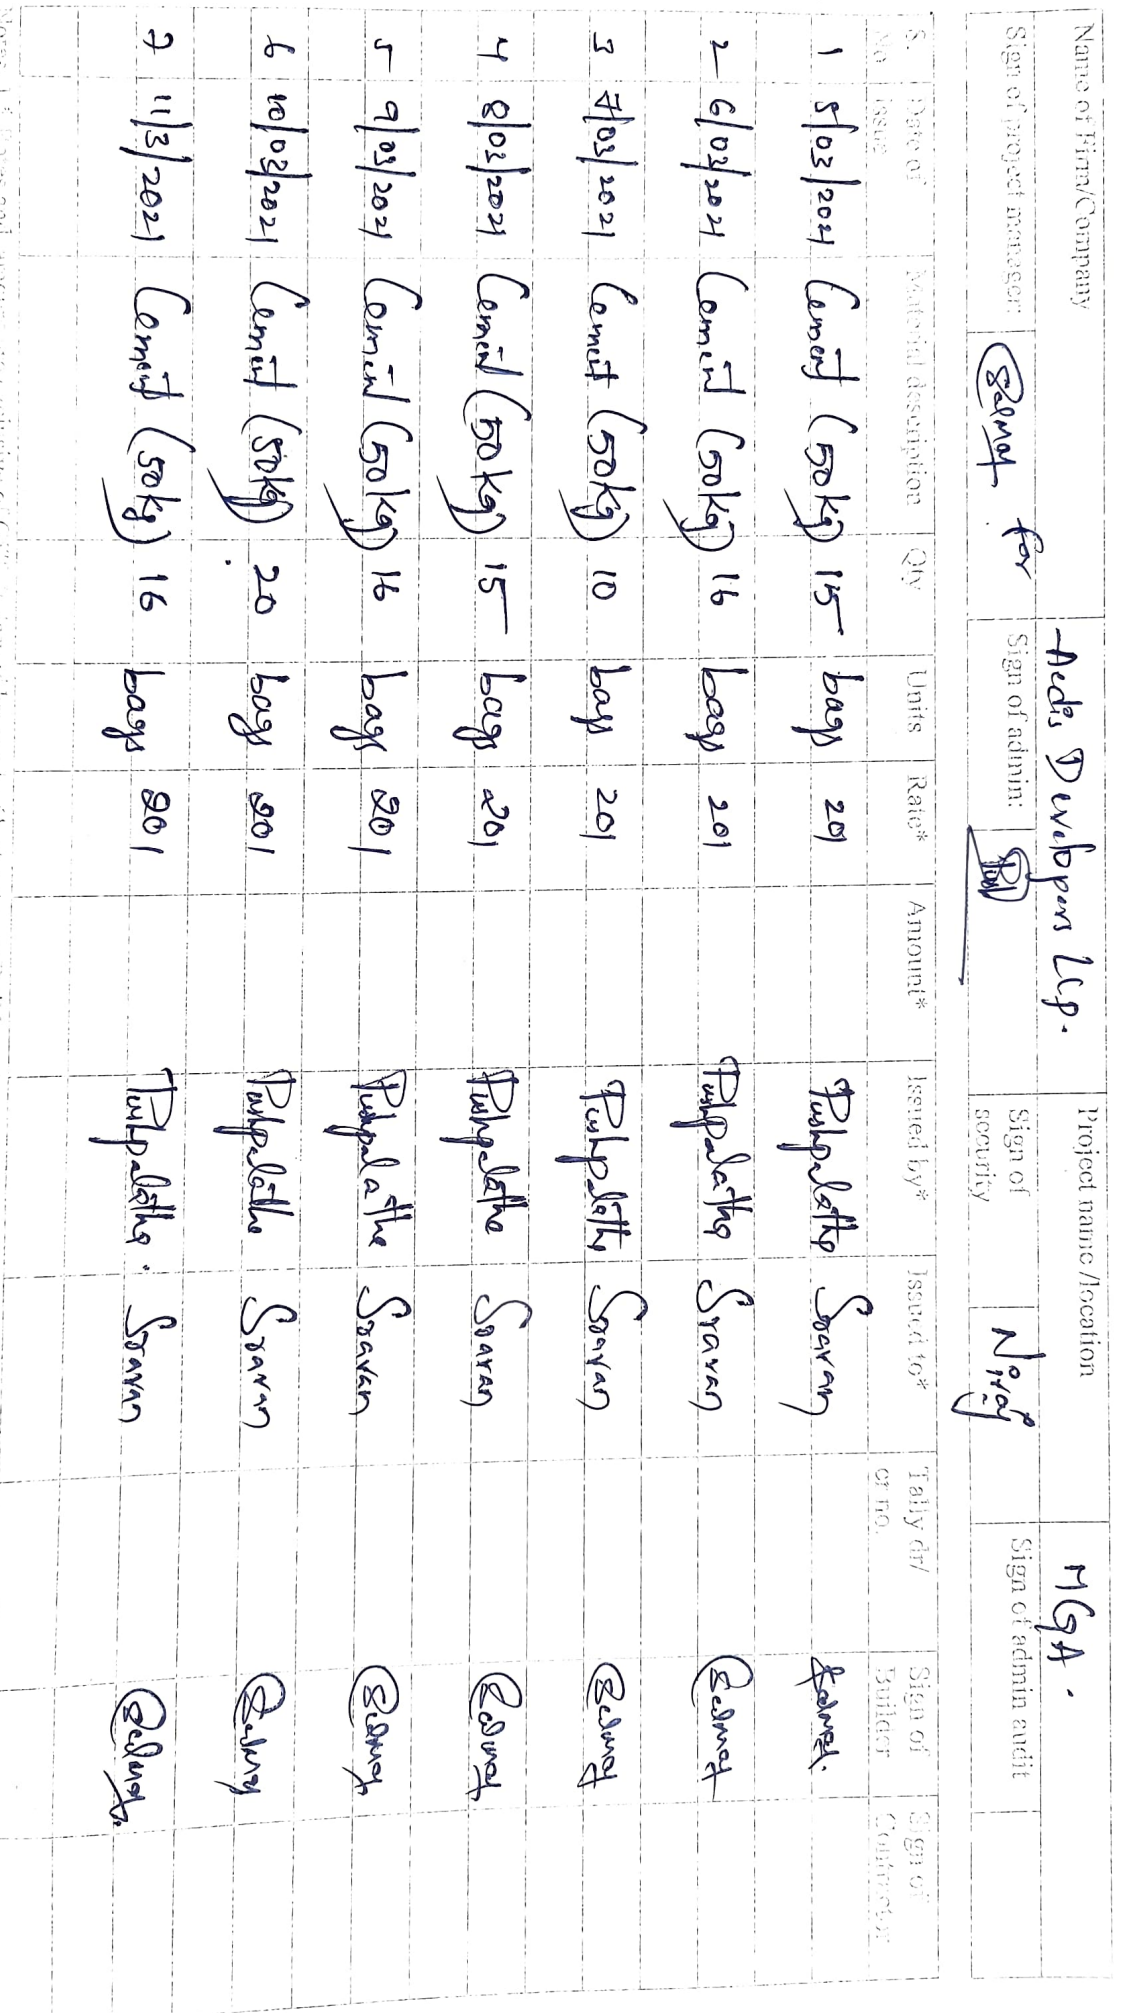 Name of Firm/Company Aedis Developers LLP. Project name/location MGA.
Sign of project manager: for Sign of admin: Sign of security Niraj Sign of admin audit
S. No Date of issue Material description Qty Units Rate* Amount* Issued by* Issued to* Tally dr/ cr no. Sign of Builder Sign of Contractor
1 5/03/2021 Cement (50kg) 15 bags 201 Pushpalatha Sravan
2 6/03/2021 Cement (50kg) 16 bags 201 Pushpalatha Sravan
3 7/03/2021 Cement (50kg) 10 bags 201 Pushpalatha Sravan
4 8/03/2021 Cement (50kg) 15 bags 201 Pushpalatha Sravan
5 9/03/2021 Cement (50kg) 16 bags 201 Pushpalatha Sravan
6 10/03/2021 Cement (50kg) 20 bags 201 Pushpalatha Sravan
7 11/3/2021 Cement (50kg) 16 bags 201 Pushpalatha. Sravan